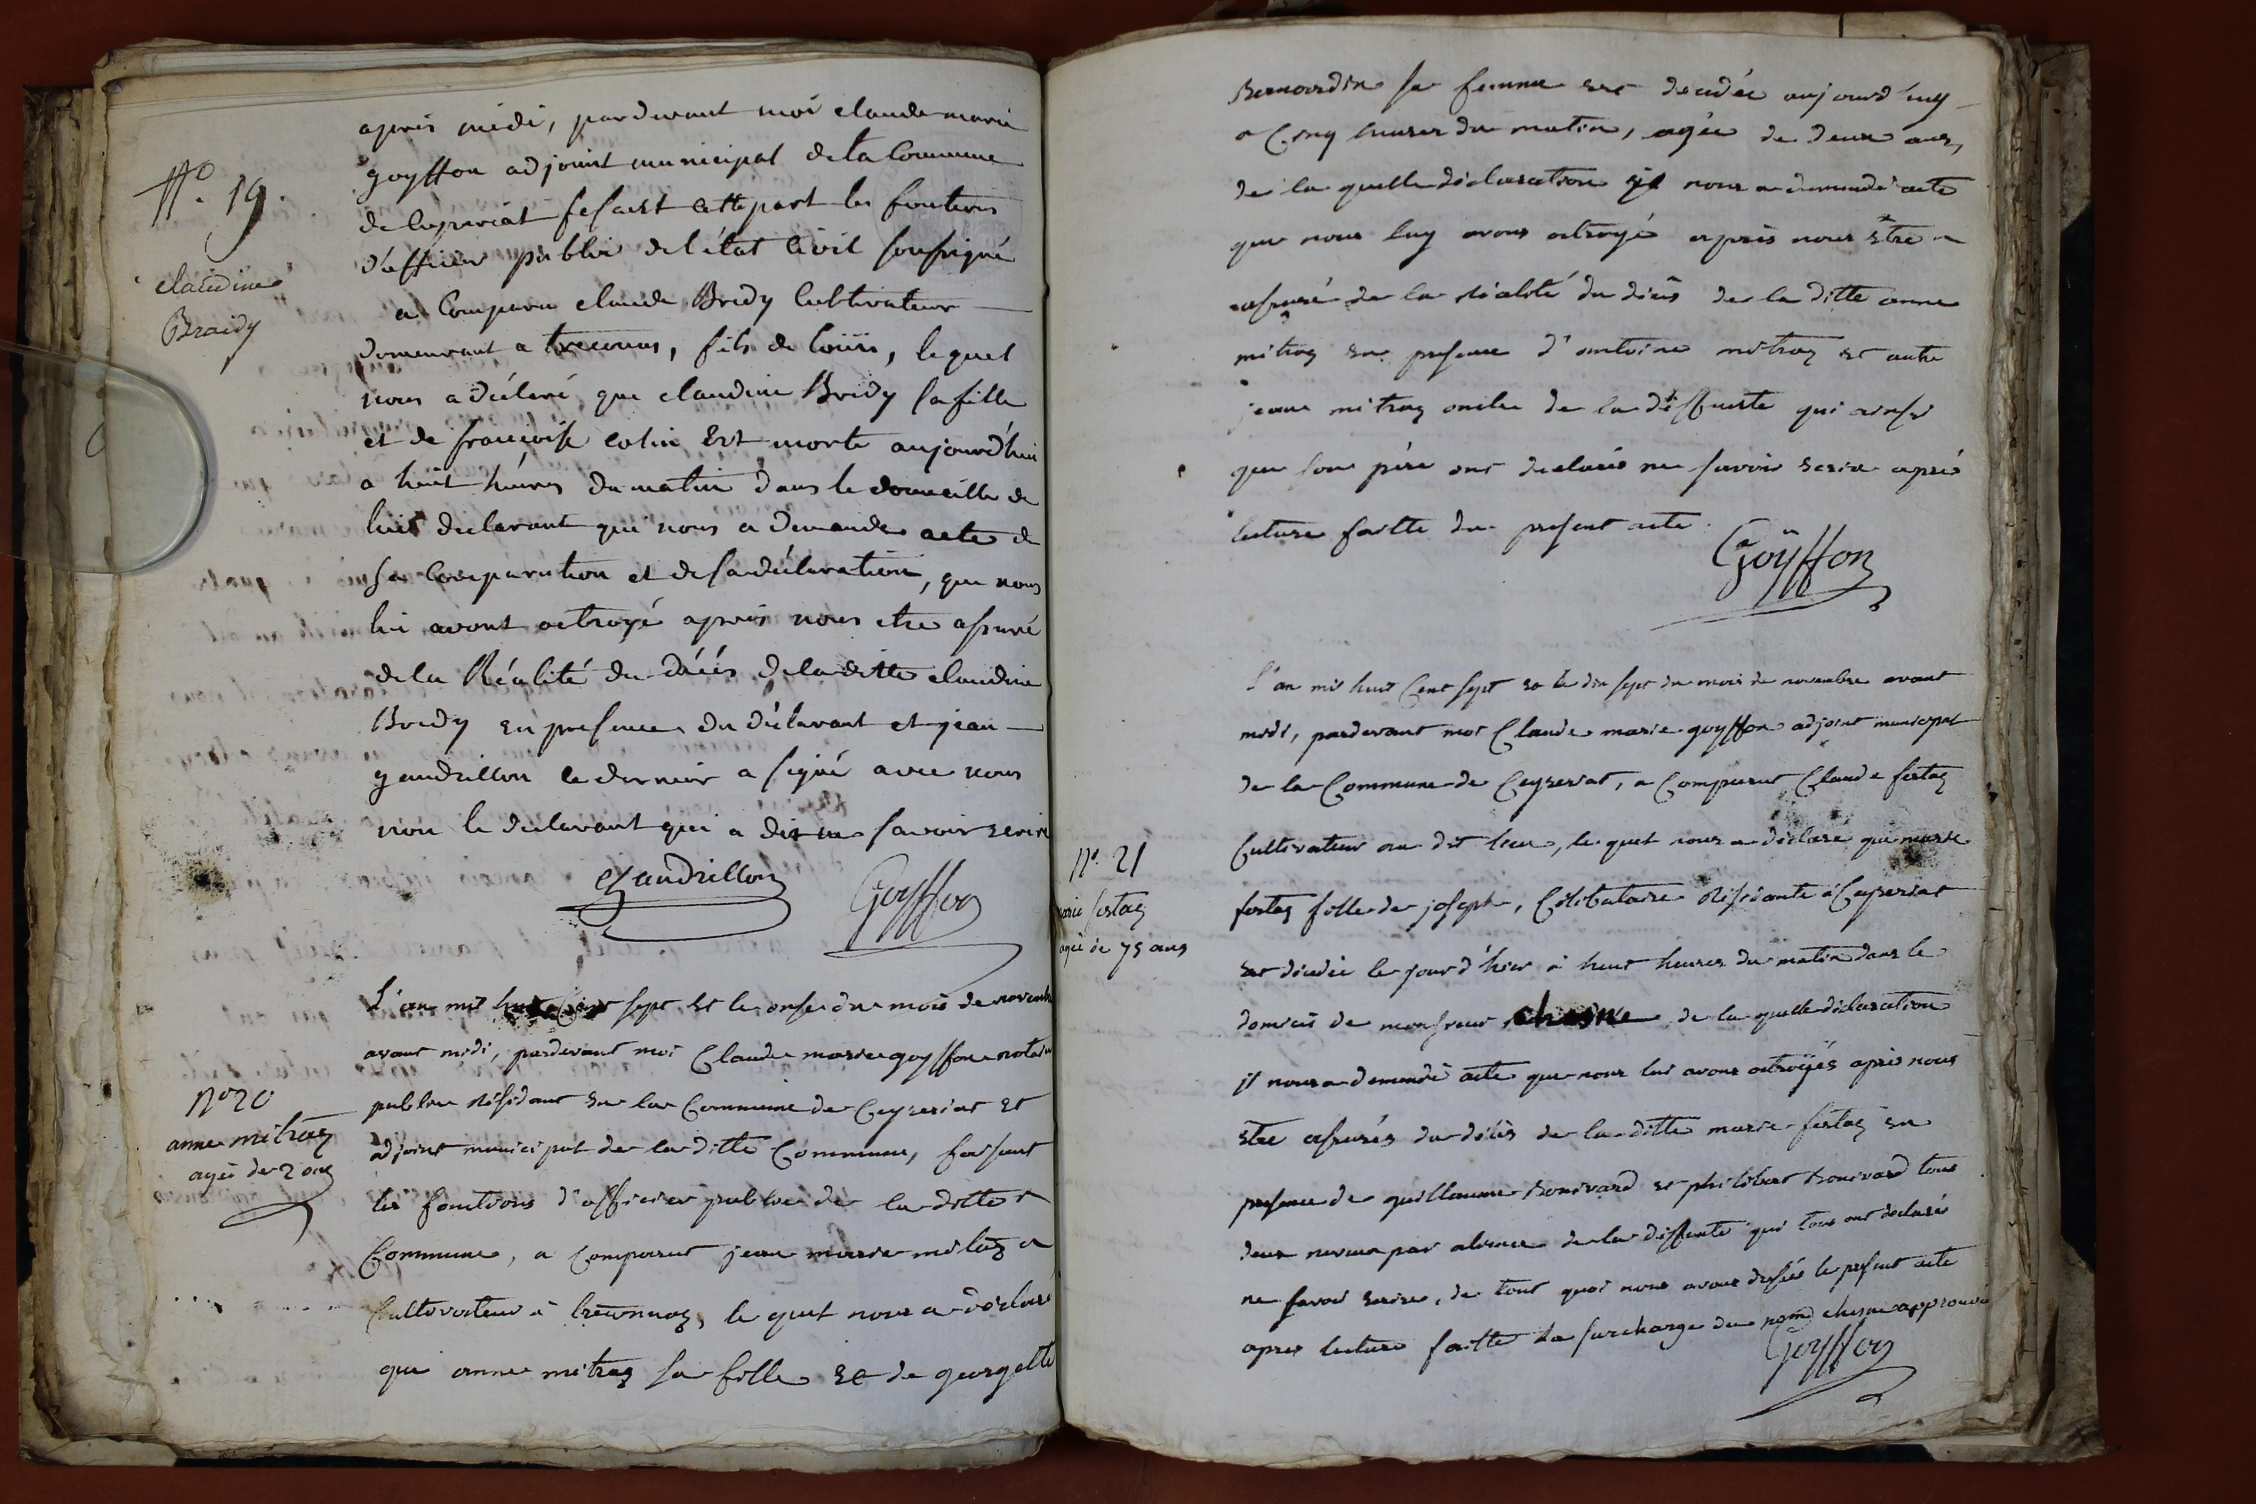 après midi, pardevant moi claude marie
goyffon adjoint municipal de la Commune
de Ceyzeriat fesant cette part les fonctions
d'officier public de l'état Civil soussigné
N.° 19.
claudine
Braidy
a Comparu claude Bridy Cultivateur
demeurant a treconnas, fils de louis, lequel
nous a déclaré que claudine Bridy sa fille
et de françoise colin Est morte aujourd'hui
a huit héures du matin dans le domicille de
luis declarant qui nous a demandé acte de
sa Comparution et de sa déclaration, que nous
lui avont octroyé après nous etre assuré
de la Réalité du décés de la ditte claudine
Bridy en presence du déclarant et jean
gandrillon ce dernier a signé avec nous
non le declarant qui a dit ne savoir Ecrire
Gandrillon Goyffon
L'an mil huit Cent sept et le onse du mois de novembre
avant midi, pardevant moi Claude marie goyffon notaire
N° 20
anne mitraz
agée de 2 ans
public résidant en la Commune de Ceyzeriat et
adjoint municipal de la ditte Commune, faisant
les fonctions d'officier public de la ditte
Commune, a Comparut jean marie mitraz
Cultivateur à treconnaz, le quel nous a déclaré
que anne mitraz sa fille et de georgette
Bernardin sa femme est decedée aujourd'huy
a Cinq heures du matin, agée de deux ans,
de la quelle déclaration il nous a demandé acte
que nous luy avons octroyé après nous être
assuré de la réalité du décès de la ditte anne
mitraz en presence d'antoine mitraz et autre
jean mitraz oncles de la deffunte qui ainsi
que son père ont declarés ne savoir écrire après
lecture faitte du present acte.
Goÿffon
L'an mil huit Cent sept et le dix sept du mois de novembre avant
midi, pardevant moi Claude marie goyffon adjoint municipal
de la Commune de Ceyzeriat, a Comparut Claude fertaz
N°. 21
marie fertaz
agée de 75 ans
Cultivateur au dit lieu, le quel nous a déclaré que marie
fertaz fille de joseph, Célibataire résidante à Ceyzeriat
est décédée le jour d'hier à huit heures du matin dans le
domicil de monsieur chesne de la quelle déclaration
il nous a demandé acte que nous lui avons octroyés après nous
être assurés du décès de la ditte marie fertaz en
presence de guillaume Bonivard et philibert Bonivard tous
deux neveux par alience de la deffunte qui tous ont declaré
ne savoir écrire, de tout quoi nous avons dressés le present acte
apres lecture faitte la surcharge du nom chesne approuvé
Goyffon